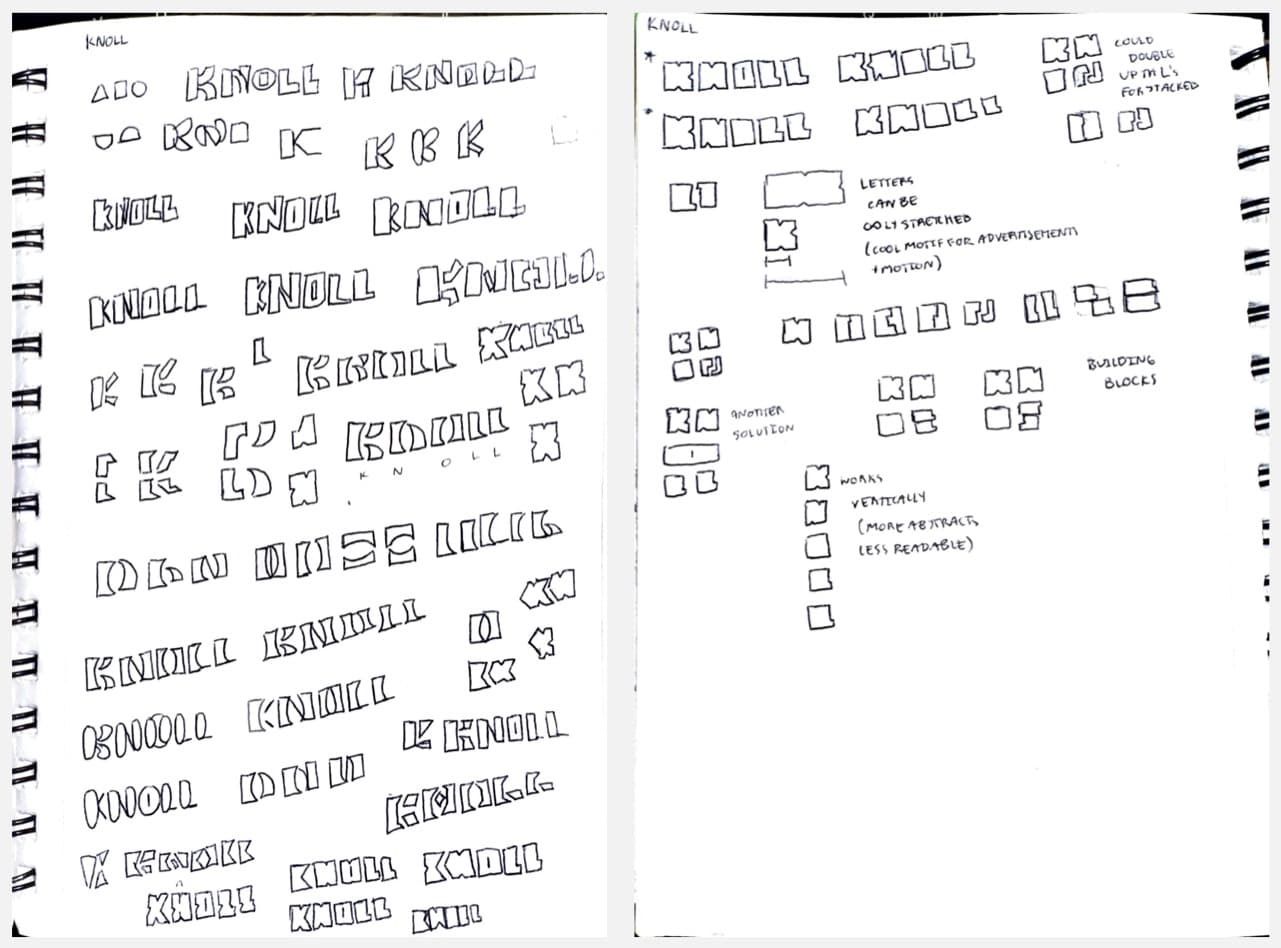 KNOLL
KNOLL KNOLL
KNO K K K K
KNOLL KNOLL KNOLL
KNOLL KNOLL
K K K KNOLL KNOLL
K KNOLL
K N O L L
KNOLL KNOLL
KNOLL KNOLL
KNOLL K KNOLL
KNOLL
KNOLL KNOLL
KNOLL KNOLL KNOLL
KNOLL
* KNOLL KNOLL
* KNOLL KNOLL
COULD
DOUBLE
UP THE L'S
FOR STACKED
LETTERS
CAN BE
STRETCHED
(COOL MOTIF FOR ADVERTISEMENTS
+ MOTION)
BUILDING
BLOCKS
ANOTHER
SOLUTION
WORKS
VERTICALLY
(MORE ABSTRACT,
LESS READABLE)